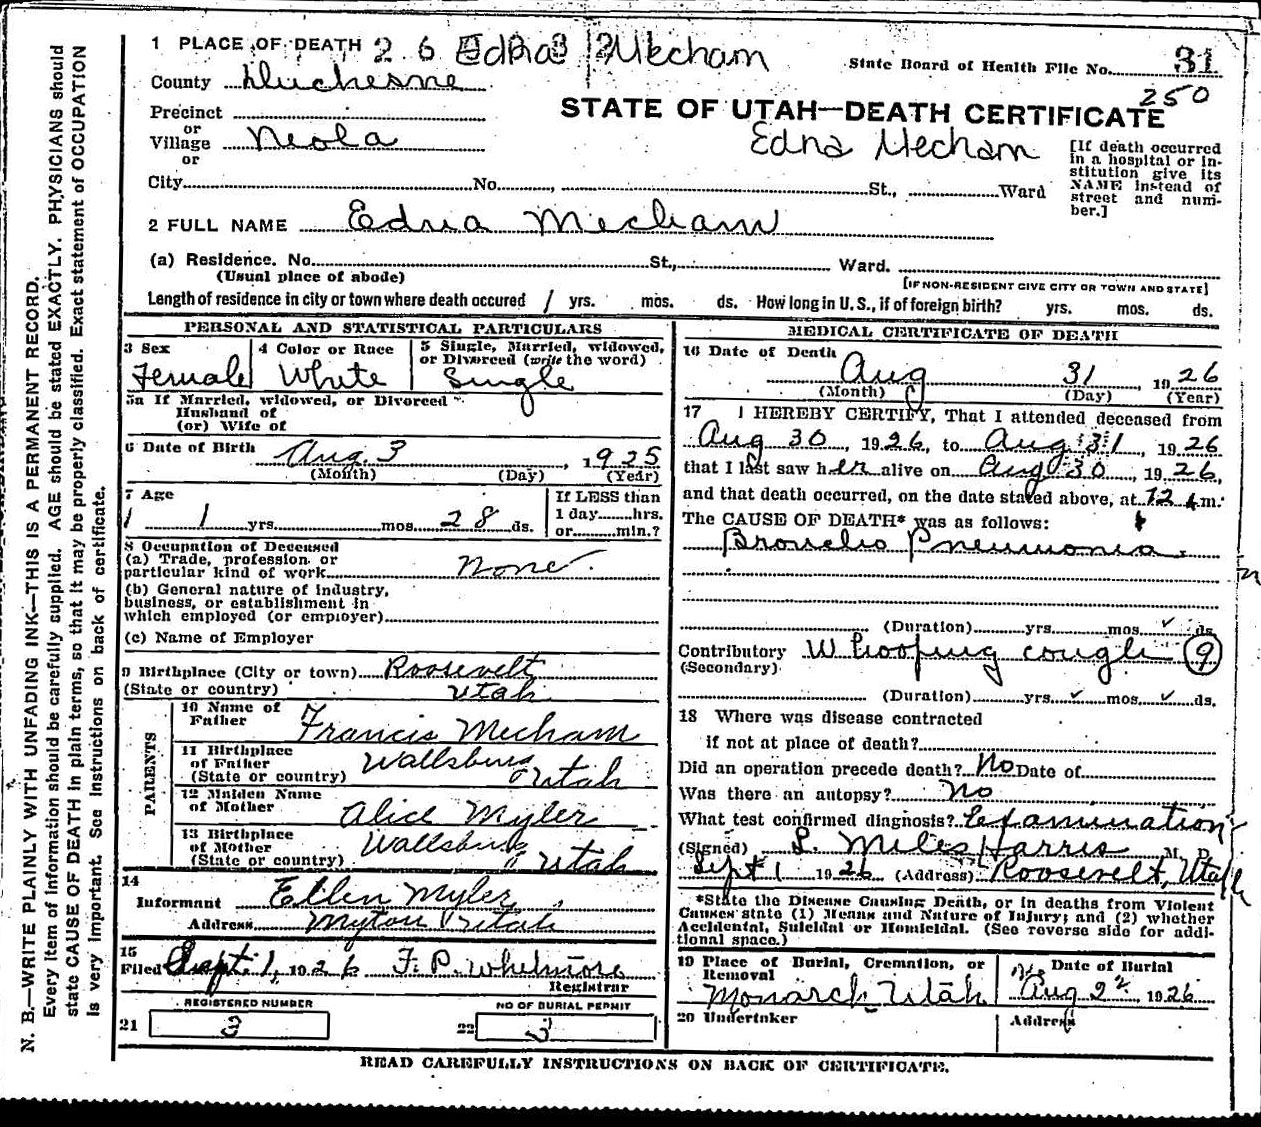 1 PLACE OF DEATH 2 6 Edna Mecham
State Board of Health File No. 31
County Duchesne
250
STATE OF UTAH—DEATH CERTIFICATE
Precinct
or
Village Neola
Edna Mecham
or
City No. , St., Ward
[If death occurred
in a hospital or in-
stitution give its
NAME instead of
street and num-
ber.]
2 FULL NAME Edna Mecham
(a) Residence. No. St., Ward.
(Usual place of abode)
[IF NON-RESIDENT GIVE CITY OR TOWN AND STATE]
Length of residence in city or town where death occured 1 yrs. mos. ds. How long in U. S., if of foreign birth? yrs. mos. ds.
PERSONAL AND STATISTICAL PARTICULARS
3 Sex
Female
4 Color or Race
White
5 Single, Married, widowed,
or Divorced (write the word)
Single
5a If Married, widowed, or Divorced
Husband of
(or) Wife of
6 Date of Birth Aug. 3, 1925
(Month) (Day) (Year)
7 Age
1 yrs. mos. 28 ds.
If LESS than
1 day hrs.
or min.?
8 Occupation of Deceased
(a) Trade, profession, or
particular kind of work none
(b) General nature of industry,
business, or establishment in
which employed (or employer)
(c) Name of Employer
9 Birthplace (City or town) Roosevelt
(State or country) Utah
PARENTS
10 Name of
Father Francis Mecham
11 Birthplace
of Father Wallsburg
(State or country) Utah
12 Maiden Name
of Mother Alice Myler
13 Birthplace
of Mother Wallsburg
(State or country) Utah
14
Informant Ellen Myler
Address Myton Utah
15
Filed Sept. 1, 1926 F. P. Whitmore
Registrar
REGISTERED NUMBER
21 3
NO OF BURIAL PERMIT
22 3
MEDICAL CERTIFICATE OF DEATH
16 Date of Death
Aug 31, 1926
(Month) (Day) (Year)
17 I HEREBY CERTIFY, That I attended deceased from
Aug 30, 1926, to Aug 31, 1926
that I last saw her alive on Aug 30, 1926,
and that death occurred, on the date stated above, at 12 m.
The CAUSE OF DEATH* was as follows:
Broncho Pneumonia
(Duration) yrs. mos. ds.
Contributory Whooping cough 9
(Secondary)
(Duration) yrs. mos. ds.
18 Where was disease contracted
if not at place of death?
Did an operation precede death? No Date of
Was there an autopsy? No
What test confirmed diagnosis? Examination
(Signed) L. Miles Harris M. D.
Sept 1 1926 (Address) Roosevelt, Utah
*State the Disease Causing Death, or in deaths from Violent
Causes state (1) Means and Nature of Injury; and (2) whether
Accidental, Suicidal or Homicidal. (See reverse side for addi-
tional space.)
19 Place of Burial, Cremation, or
Removal
Monarch Utah
Date of Burial
Aug 2 1926
20 Undertaker
Address
READ CAREFULLY INSTRUCTIONS ON BACK OF CERTIFICATE.
N. B.—WRITE PLAINLY WITH UNFADING INK—THIS IS A PERMANENT RECORD.
Every item of information should be carefully supplied. AGE should be stated EXACTLY. PHYSICIANS should
state CAUSE OF DEATH in plain terms, so that it may be properly classified. Exact statement of OCCUPATION
is very important. See instructions on back of certificate.